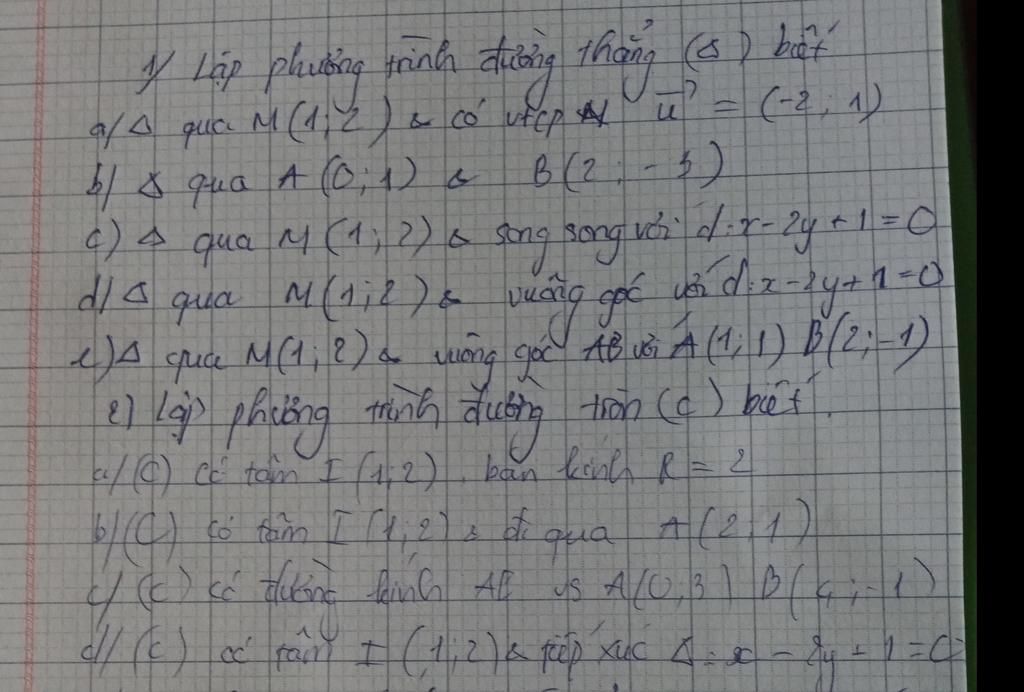 1/ Lập phương trình đường thẳng (Δ) biết
a/ Δ qua M(1;2) & có vtcp u→ = (-2; 1)
b/ Δ qua A (0;1) & B(2; -3)
c) Δ qua M(1;2) & song song với d: x-2y+1=0
d/ Δ qua M(1;2) & vuông góc với d: x-2y+1=0
e) Δ qua M(1;2) & vuông góc AB với A(1;1) B(2;-1)
2) Lập phương trình đường tròn (C) biết.
a/ (C) có tâm I(1;2), bán kính R = 2
b/ (C) có tâm I(1;2) & đi qua A(2;1)
c/ (C) có đường kính AB vs A(0;3) B(4;-1)
d/ (C) có tâm I (1;2) & tiếp xúc Δ: x - 2y + 1 = 0